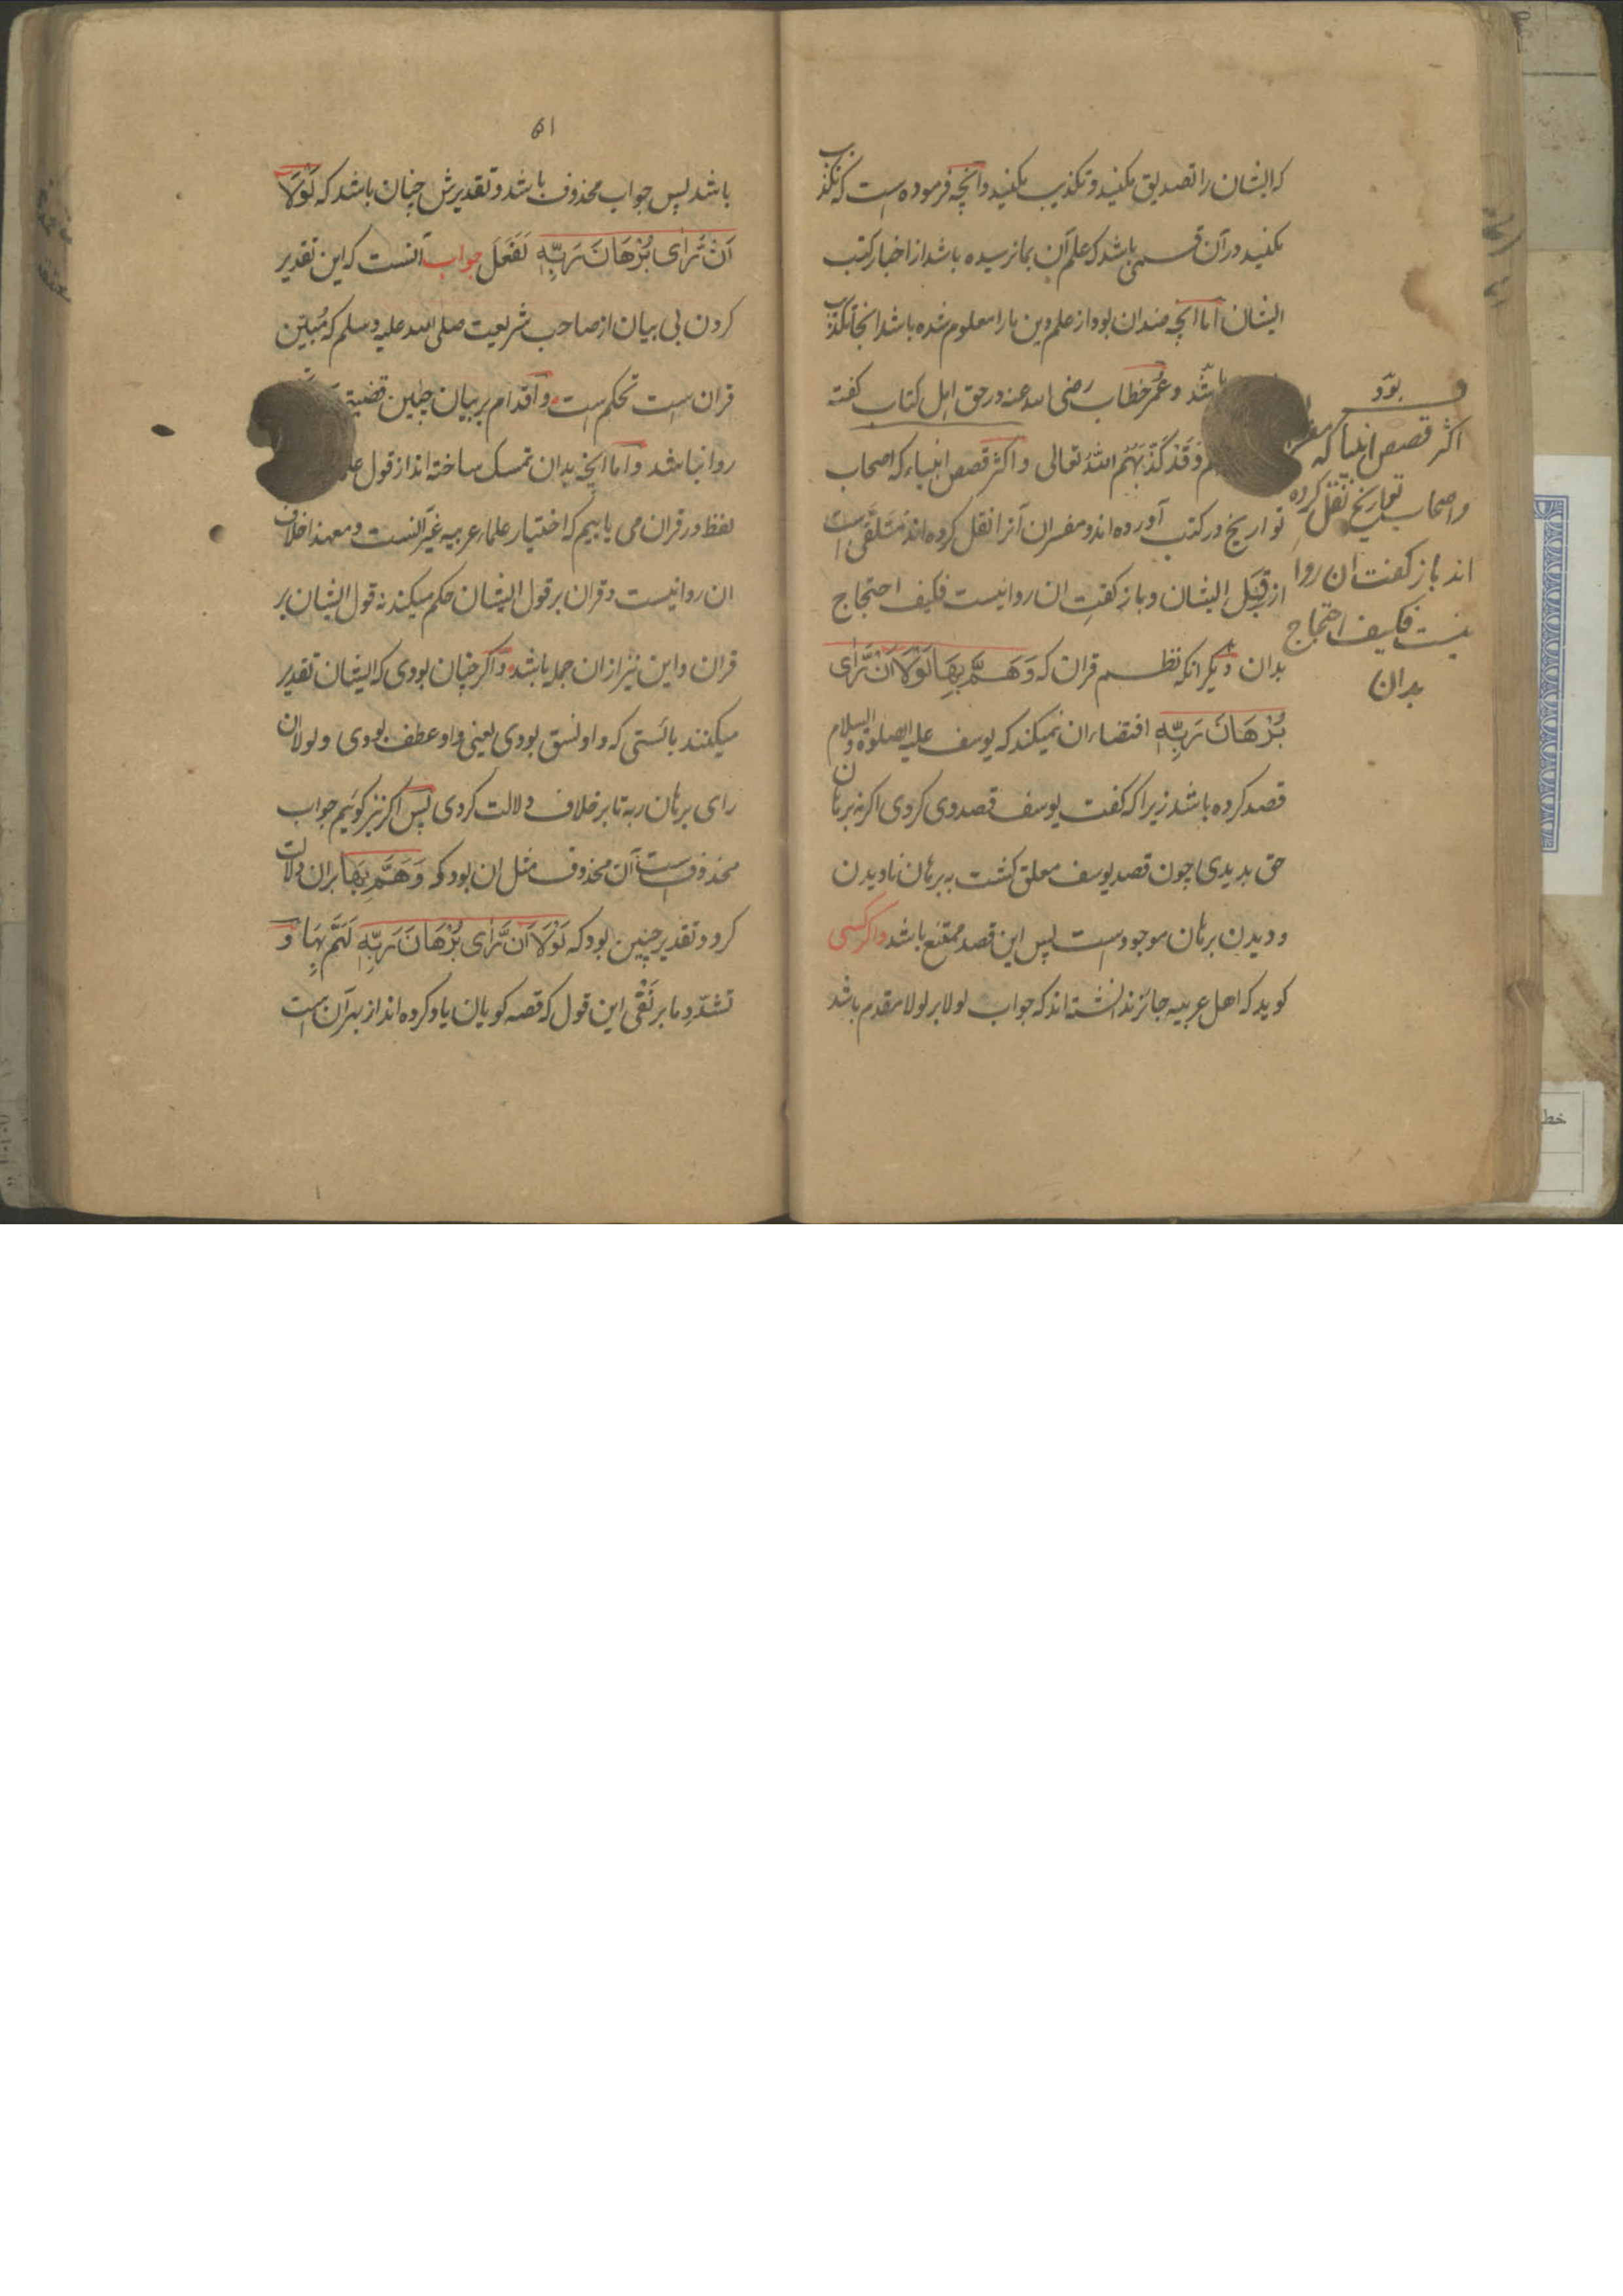 که ایشان را تصدیق مکنید و تکذیب مکنید و آنچه فرموده است که تکذیب
مکنید در آن قسمی باشد که علم آن بما نرسیده باشد از اخبار کتب
ایشان اما آنچه ضد ان بود از علم دین ما را معلوم شده باشد انجا تکذیب
باشد و عمر خطاب رضی الله عنه در حق اهل کتاب کفته
وَقَدْ كَذَّبَهُمُ اللهُ تعالی و اکثر قصص انبیاء که اصحاب
تواریخ در کتب آورده اند و مفسران آنرا نقل کرده اند مُتَلَقّی است
از قِبَلِ ایشان و باز کفتِ ان روا نیست فکیف احتجاج
بدان و دیگر انکه نظم قران که وَهَمَّ بِهَا لَوْلَا اَنْ رَّاٰی
بُرْهَانَ رَبِّهٖ اقتضاء ان نمیکند که یوسف علیه الصلوة و السلام
قصد کرده باشد زیرا که گفت یوسف قصد وی کردی اکر نه برهان
حق بدیدی چون قصد یوسف معلق کشت به برهان نادیدن
و دیدن برهان موجود است پس این قصد ممتنع باشد و اکر کسی
کوید که اهل عربیه جائز نداشته اند که جواب لولا بر لولا مقدم باشد
بود
اکثر قصص انبیا که
و اصحاب تواریخ نقل کرده
اند باز کفت ان روا
نیست فکیف احتجاج
بدان
۵۱
باشد پس جواب محذوف باشد و تقدیرش چنان باشد که لَوْلَا
اَنْ رَّاٰی بُرْهَانَ رَبِّهٖ لَفَعَلَ جواب آنست که این تقدیر
کردن بی بیان از صاحب شریعت صلی الله علیه و سلم که مُبَیّن
قران است تحکم است و اقدام بر بیان چنین قضیة
روا نباشد و اما آنچه بدان تمسک ساخته اند از قول
لفظ در قران می یابیم که اختیار علماء عربیه غیر آنست و معهذا خلاف
ان روا نیست و قران بر قول ایشان حکم میکند نه قول ایشان بر
قران و این نیز از ان جمله باشد و اکر چنان بودی که ایشان تقدیر
میکنند بائستی که واو نسق بودی یعنی واو عطف بودی و لولا ان
رای برهان ربه تا بر خلاف دلالت کردی پس اکر نیز کوئیم جواب
محذوف است آن محذوف مثل ان بود که وَهَمَّ بِهَا بران دلالت
کرد و تقدیر چنین بود که لَوْلَا اَنْ رَّاٰی بُرْهَانَ رَبِّهٖ لَهَمَّ بِهَا وَ
تشدّدِ ما بر نَفْی این قول که قصه کویان یاد کرده اند از بهر آن است
خط